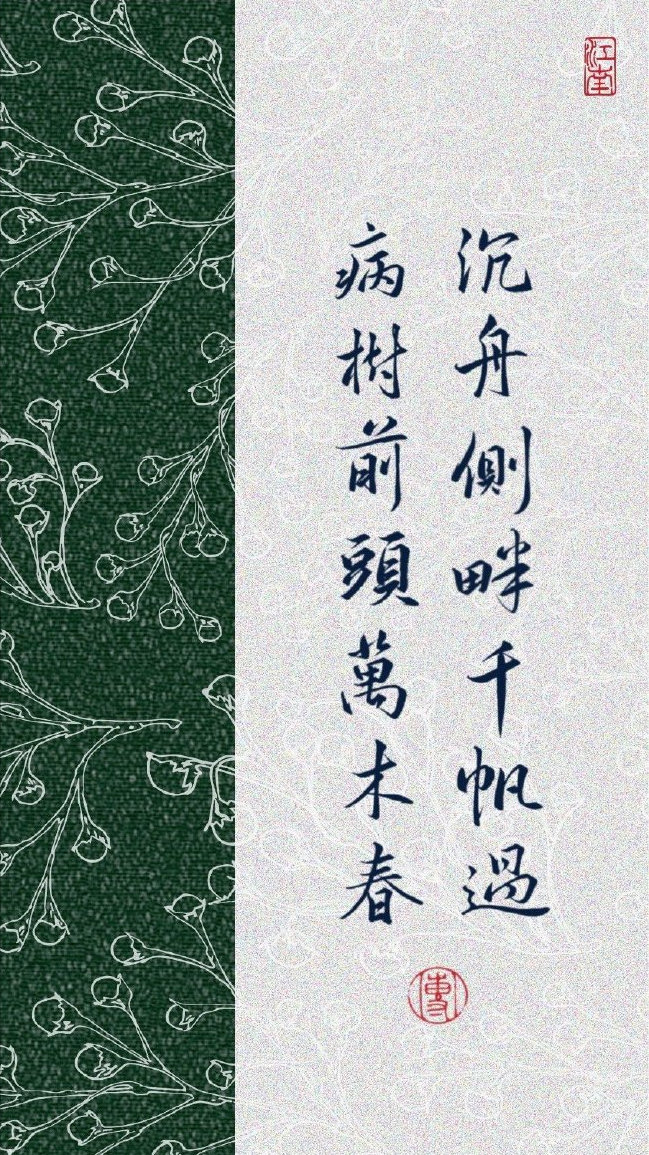 江南
沉舟側畔千帆過
病樹前頭萬木春